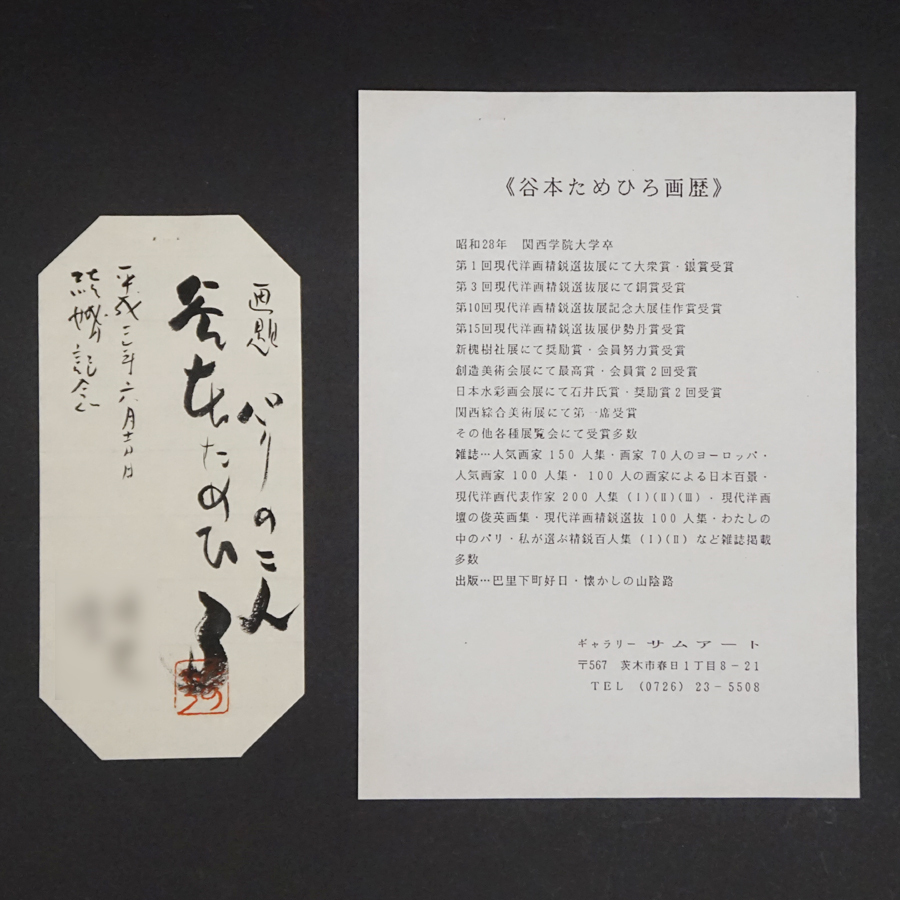 画題 パリの二人
谷本ためひろ
平成三年六月十六日
結婚記念
《谷本ためひろ画歴》
昭和28年 関西学院大学卒
第1回現代洋画精鋭選抜展にて大衆賞・銀賞受賞
第3回現代洋画精鋭選抜展にて銅賞受賞
第10回現代洋画精鋭選抜展記念大展佳作賞受賞
第15回現代洋画精鋭選抜展伊勢丹賞受賞
新槐樹社展にて奨励賞・会員努力賞受賞
創造美術会展にて最高賞・会員賞2回受賞
日本水彩画会展にて石井氏賞・奨励賞2回受賞
関西綜合美術展にて第一席受賞
その他各種展覧会にて受賞多数
雑誌…人気画家150人集・画家70人のヨーロッパ・
人気画家100人集・100人の画家による日本百景・
現代洋画代表作家200人集(Ⅰ)(Ⅱ)(Ⅲ)・現代洋画
壇の俊英画集・現代洋画精鋭選抜100人集・わたしの
中のパリ・私が選ぶ精鋭百人集(Ⅰ)(Ⅱ)など雑誌掲載
多数
出版…巴里下町好日・懐かしの山陰路
ギャラリー サムアート
〒567 茨木市春日1丁目8-21
TEL (0726) 23-5508